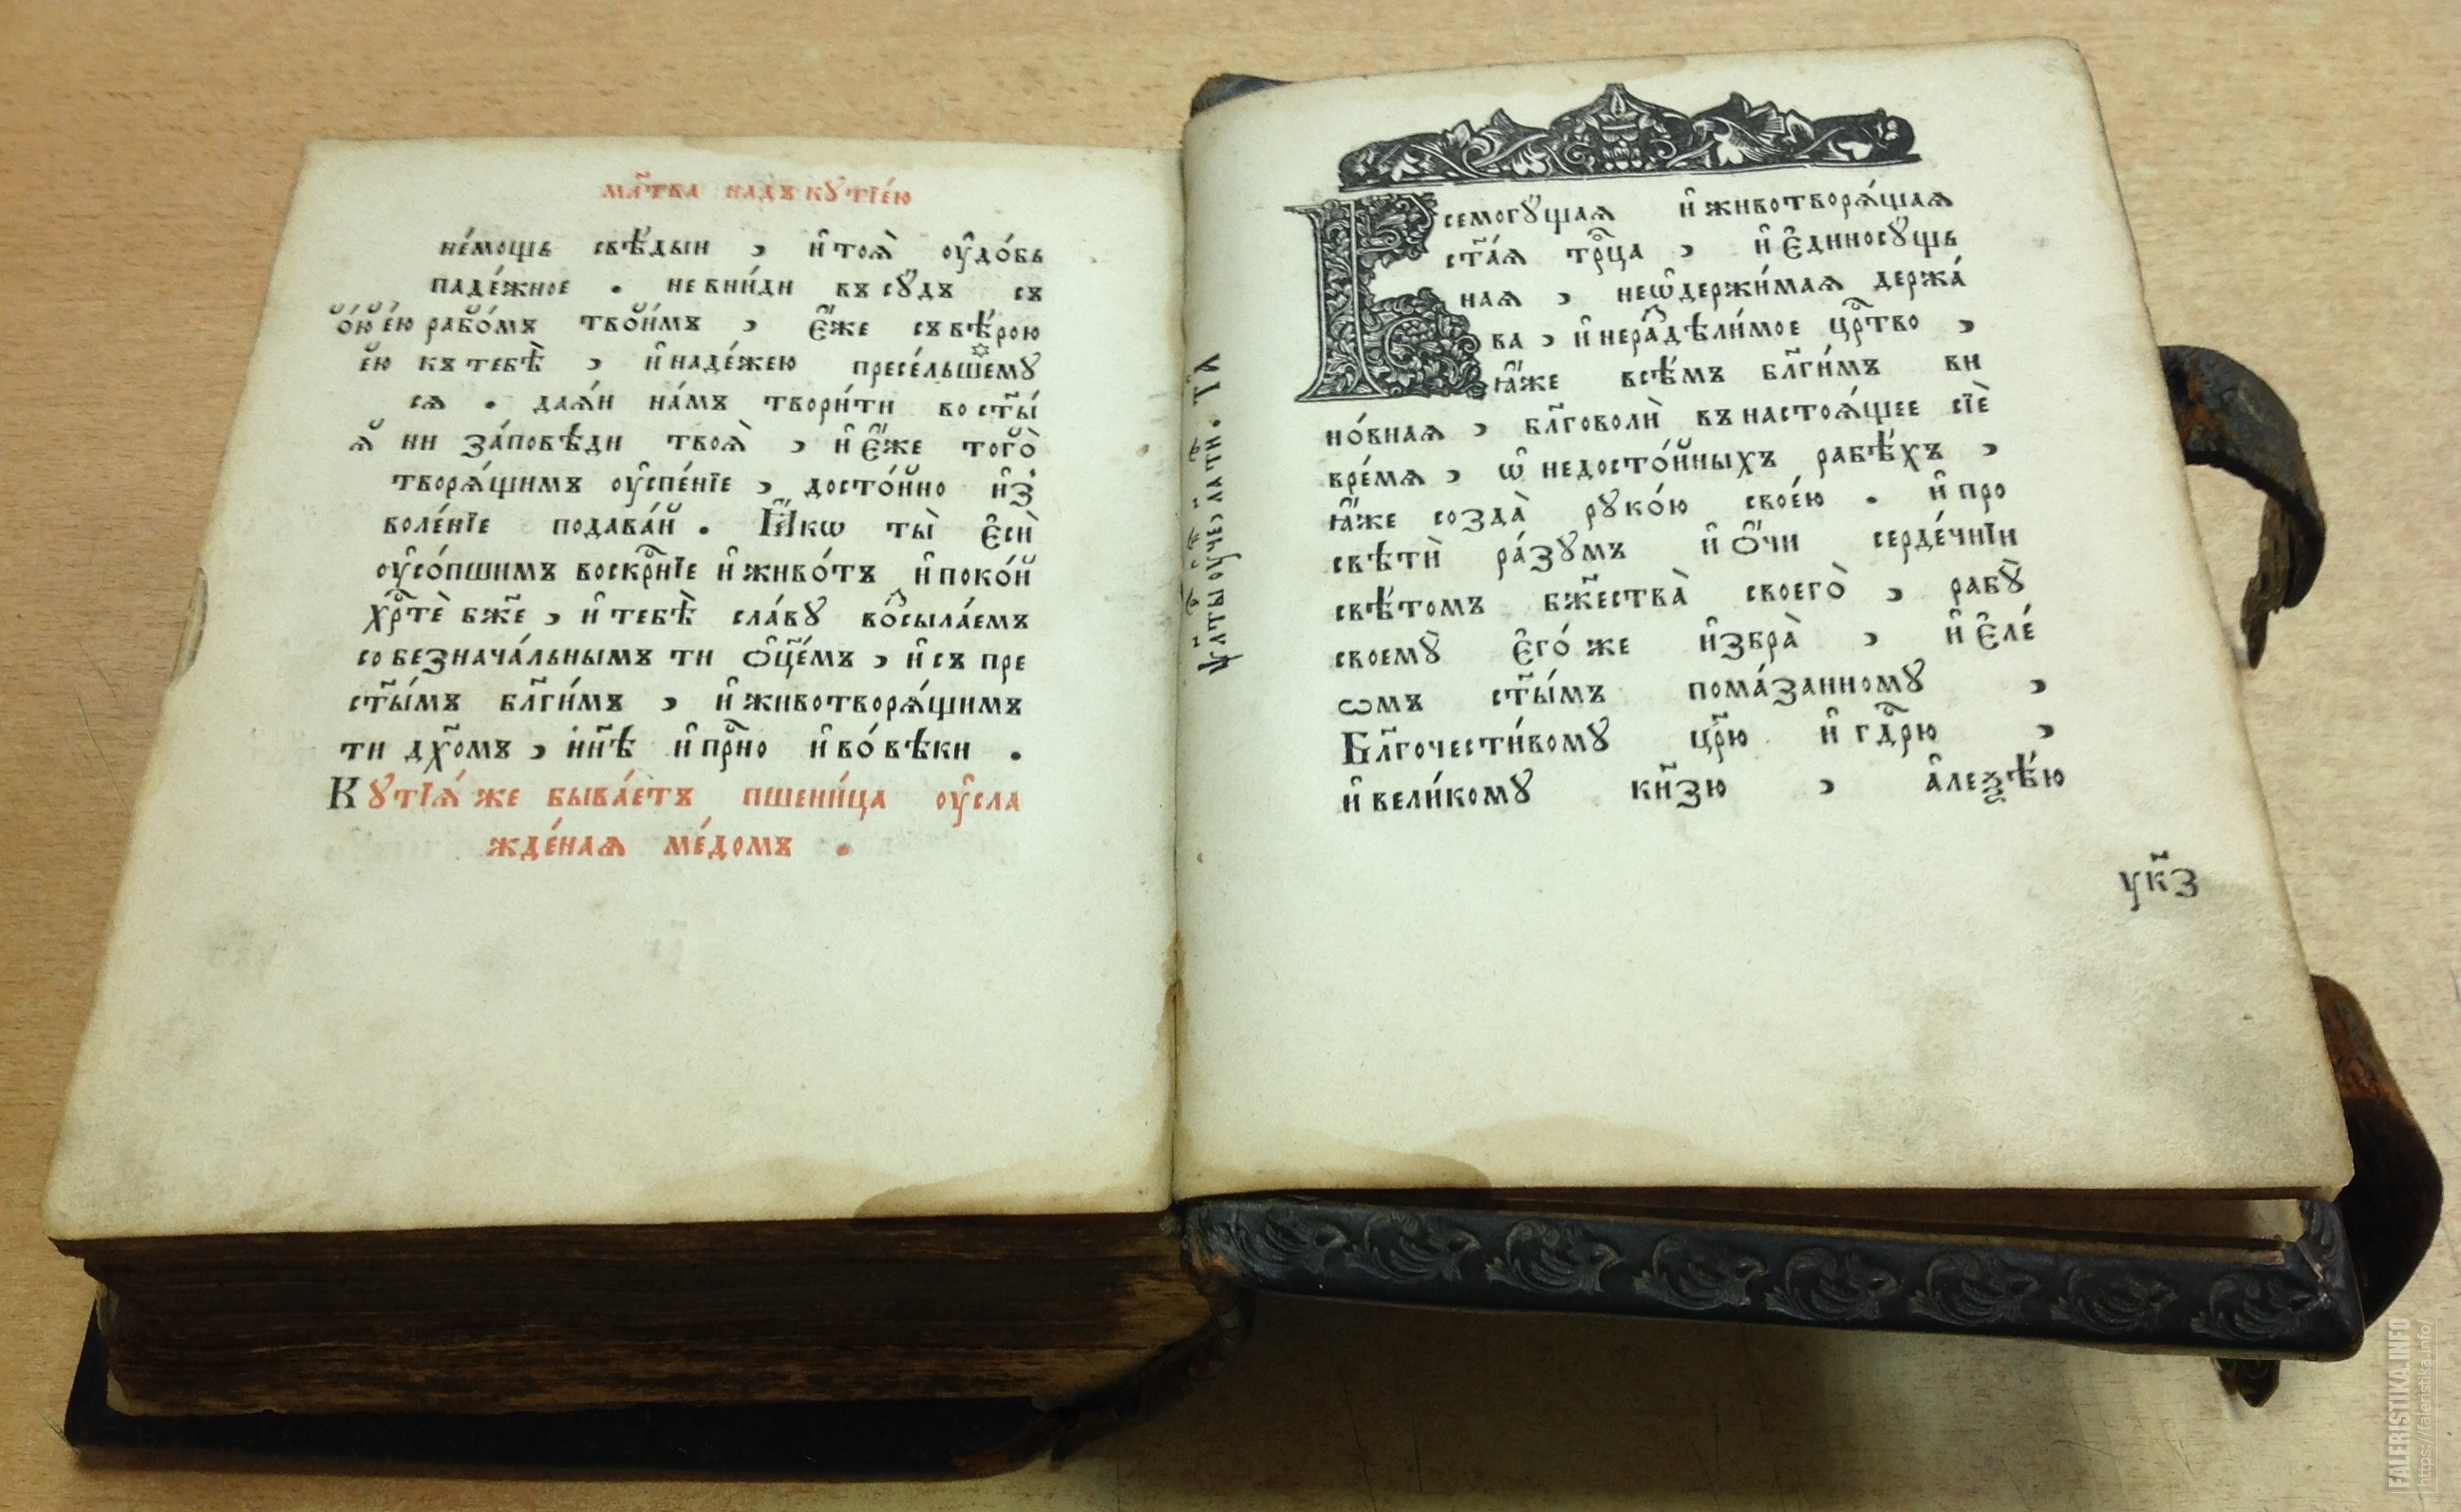 мл҃тва надъ кꙋтїе́ю
не́мощь свѣ́дыи , и҆ тоѧ̀ оу҆до́бь
паде́жное . не вни́ди въ сꙋ́дъ съ
рабо́мъ твои́мъ , е҆́же съ вѣ́рою
къ тебѣ̀ , и҆ наде́жею пресе́льшемꙋ
сѧ . даѧ́и на́мъ твори́ти во ст҃ы́
ѧ҆̀ ни за́повѣди твоѧ̀ , и҆ е҆́же того̀
творѧ́щимъ оу҆спе́нїе , досто́йно и҆з̾
воле́нїе подава́й . Ꙗ҆́кѡ ты̀ е҆сѝ
оу҆со́пшимъ воскрⷭ҇нїе и҆ живо́тъ и҆ поко́й
хрⷭ҇тѐ бж҃е , и҆ тебѣ̀ сла́вꙋ воⷥсыла́емъ
со безнача́льнымъ ти ѻ҆ц҃е́мъ , и҆ съ пре
ст҃ы́мъ бл҃ги́мъ , и҆ животворѧ́щимъ
ти дх҃омъ , нн҃ѣ и҆ прⷭ҇но и҆ во́ вѣки .
Кꙋтїѧ́ же быва́етъ пшени́ца оу҆сла
жде́наѧ ме́домъ .
Всемогꙋ́щаѧ и҆ животворѧ́щаѧ
ст҃а́ѧ трⷪ҇ца , и҆ є҆диносꙋ́щь
наѧ , неѡ҆держи́маѧ держа́
ва , и҆ нераⷥдѣли́мое црⷭ҇тво ,
ꙗ҆́же всѣ́мъ бл҃ги́мъ ви
но́внаѧ , бл҃говолѝ въ настоѧ́щее сїѐ
вре́мѧ , ѡ҆ недосто́йныхъ рабѣ́хъ ,
ꙗ҆́же созда̀ рꙋко́ю свое́ю . и҆ про
свѣтѝ ра́зꙋмъ и҆ ѻ҆́чи серде́чнїи
свѣ́томъ бж҃ества̀ своего̀ , рабꙋ̀
своемꙋ̀ є҆го́ же и҆збра̀ , и҆ є҆ле́
ѡмъ ст҃ы́мъ пома́занномꙋ ,
Бл҃гочести́вомꙋ цр҃ю и҆ гдⷭ҇рю ,
и҆ вели́комꙋ кн҃зю , а҆леѯѣ́ю
ук҃з
FALERISTIKA.INFO
https://faleristika.info/